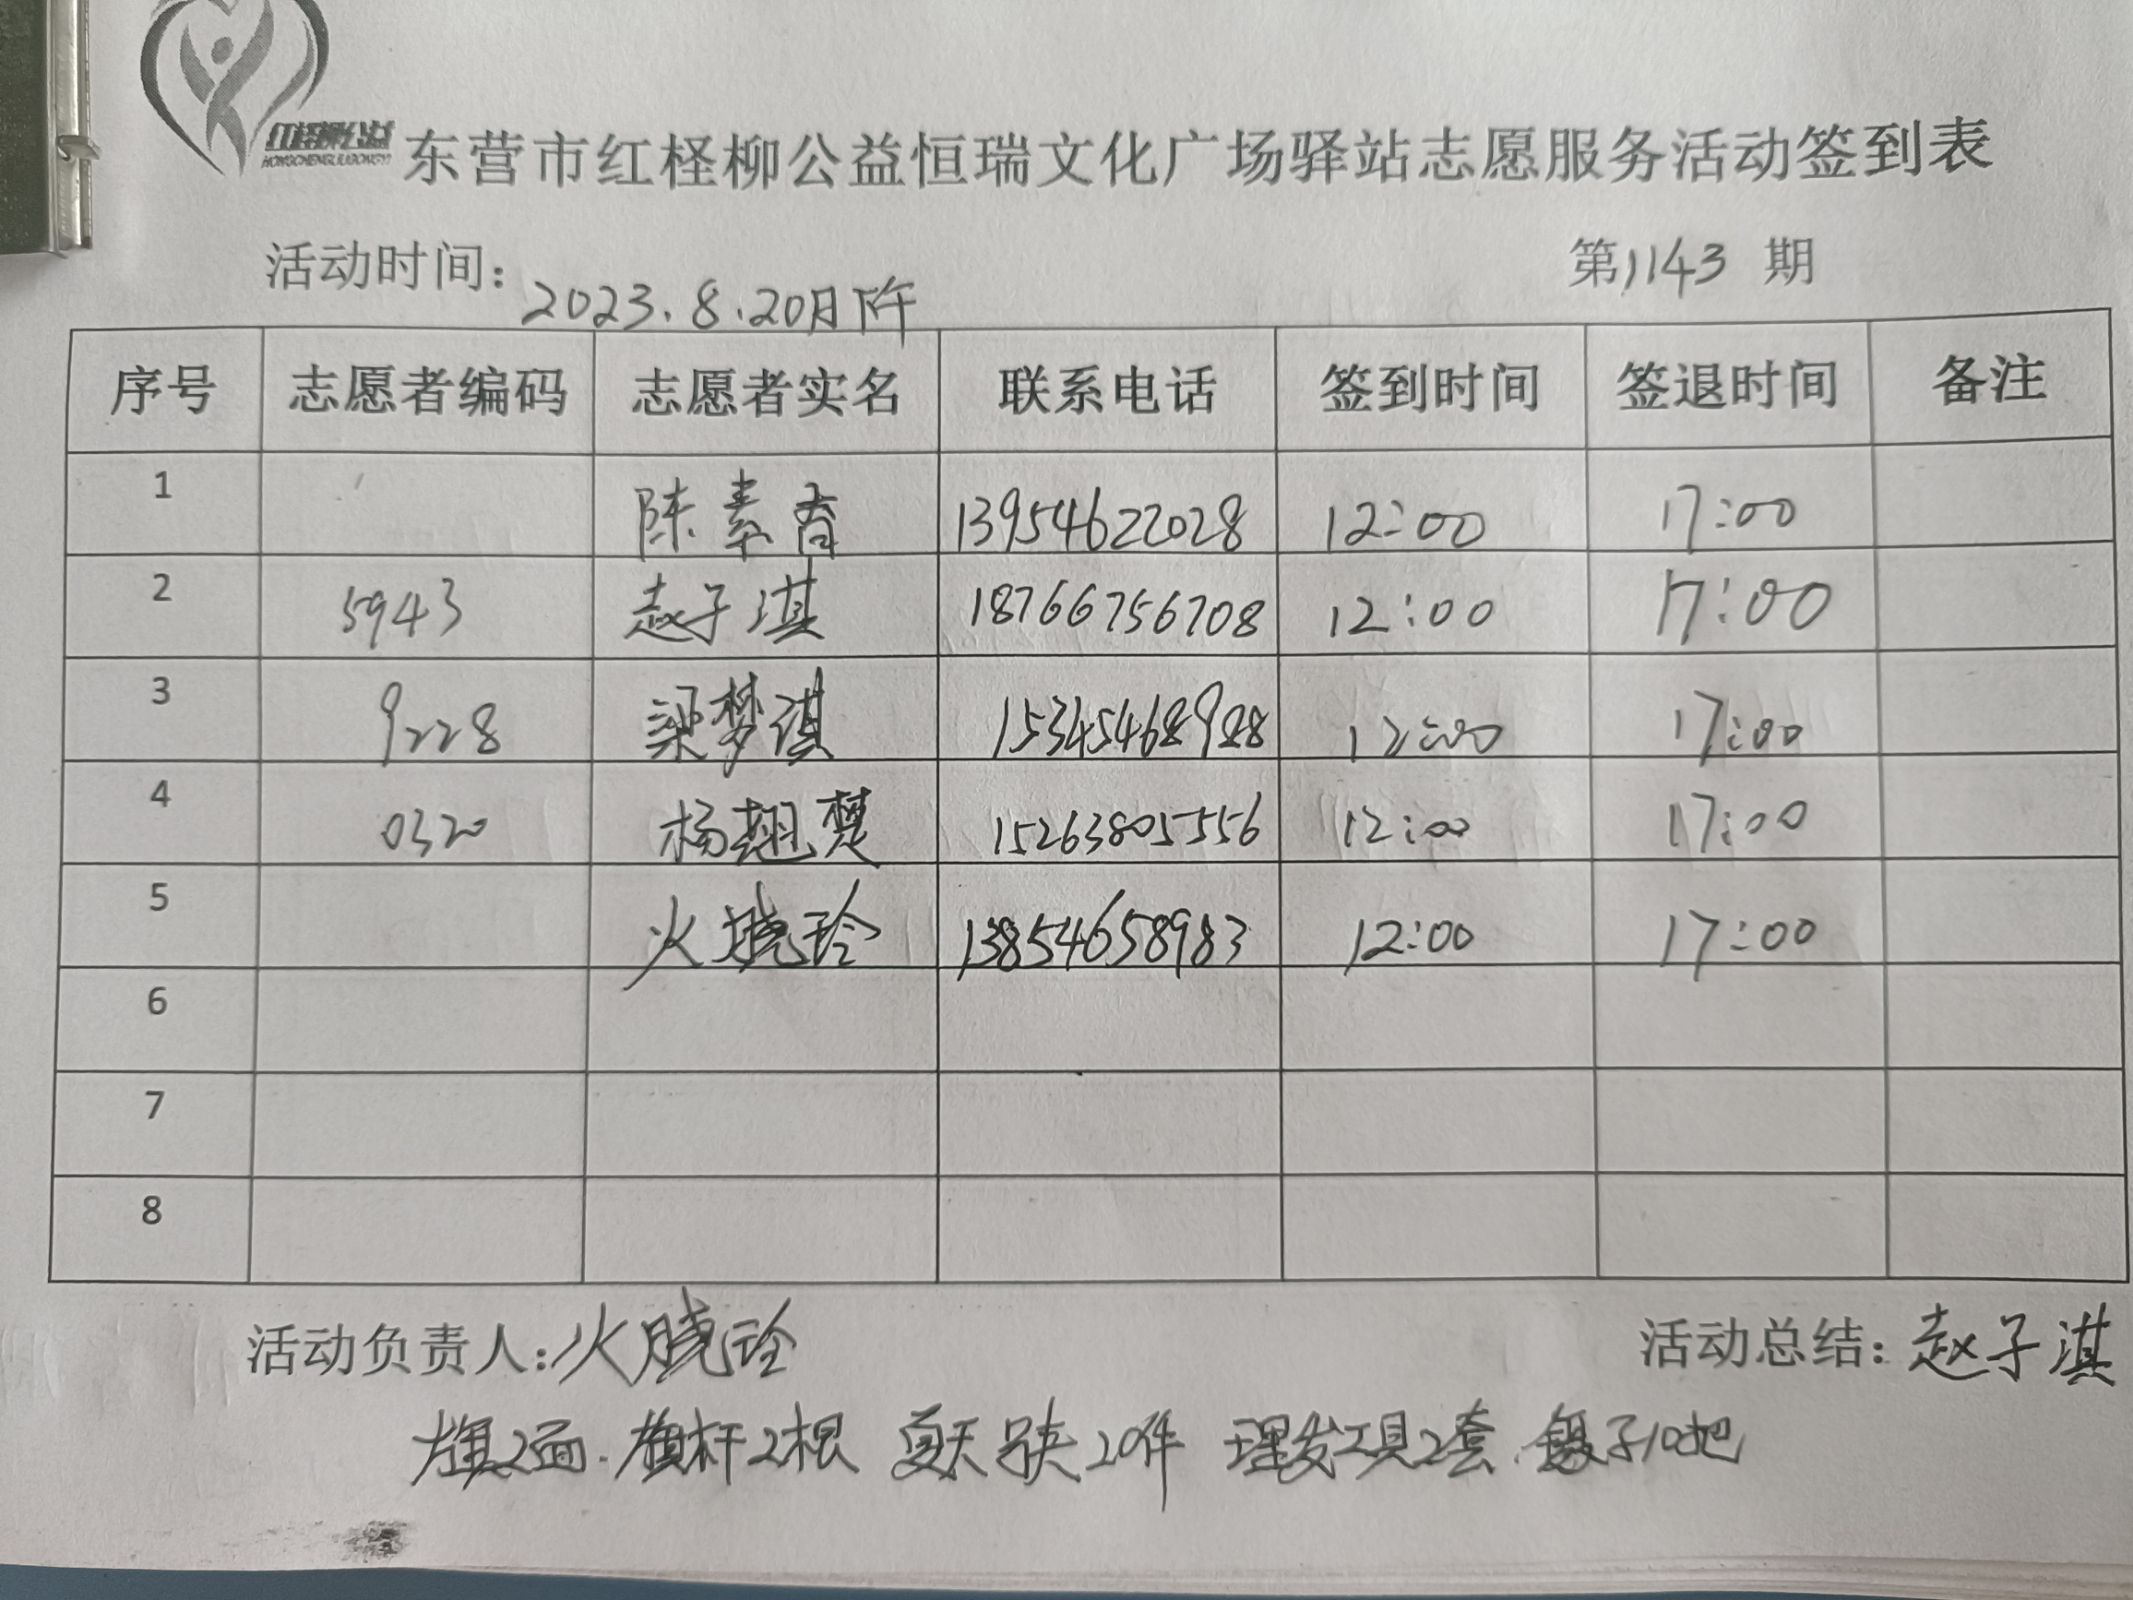 红柽柳公益
HONGCHENGLIUGONGYI
东营市红柽柳公益恒瑞文化广场驿站志愿服务活动签到表
活动时间：2023.8.20日下午 第1143期
序号 志愿者编码 志愿者实名 联系电话 签到时间 签退时间 备注
1 陈素春 13954622028 12:00 17:00
2 5943 赵子淇 18766756708 12:00 17:00
3 9228 梁梦淇 15345468988 12:00 17:00
4 0320 杨翘楚 15263805556 12:00 17:00
5 火晓玲 13854658983 12:00 17:00
6
7
8
活动负责人：火晓玲 活动总结：赵子淇
旗2面.旗杆2根 夏天 20件 理发工具2套.镊子10把